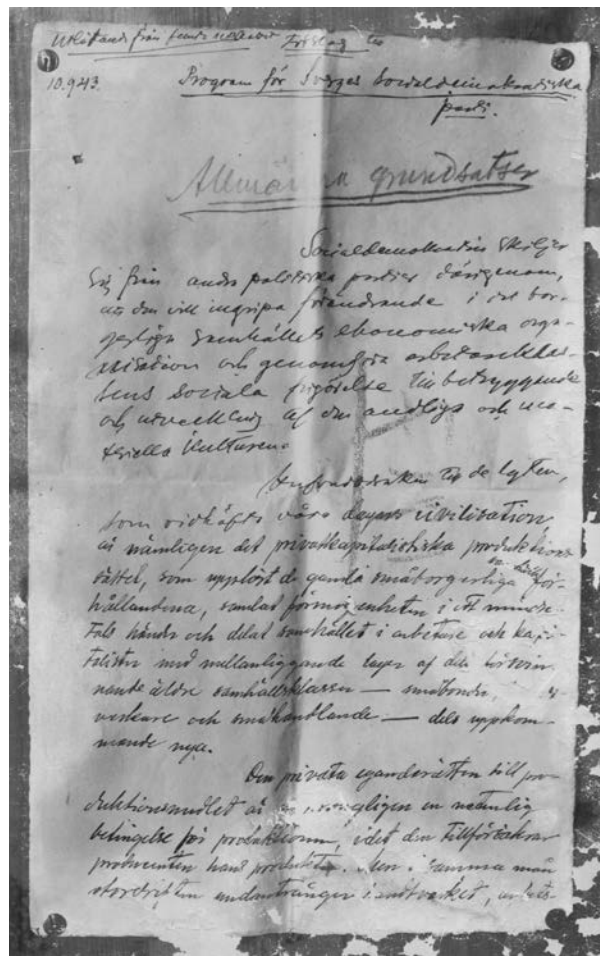 Förslag till
10.9.43.
Program för Sverges Socialdemokratiska
parti.
Allmänna grundsatser
Socialdemokratin skiljer
sig från andra politiska partier därigenom,
att den vill ingripa förändrande i det bor-
gerliga samhällets ekonomiska orga-
nisation och genomföra arbetareklas-
sens sociala frigörelse till betryggande
och utveckling af den andliga och ma-
teriella kulturen.
Hufvudorsaken till de lyten,
som vidhäfta våra dagars civilisation,
är nämligen det privatkapitalistiska produktions-
sättet, som upplöst de gamla småborgerliga för-
hållandena, samlat förmögenheten i ett mindre-
tals händer och delat samhället i arbetare och kapi-
talister med mellanliggande lager af dels försvin-
nande äldre samhällsklasser — småbönder,
verkare och småhandlande — dels uppkom-
mande nya.
Den privata eganderätten till pro-
duktionsmedlet är en naturlig
betingelse för produktionen, idet den tillförsäkrar
producenten hans produkt. Men i samma mån
stordriften undantränger handtverket, arbets-